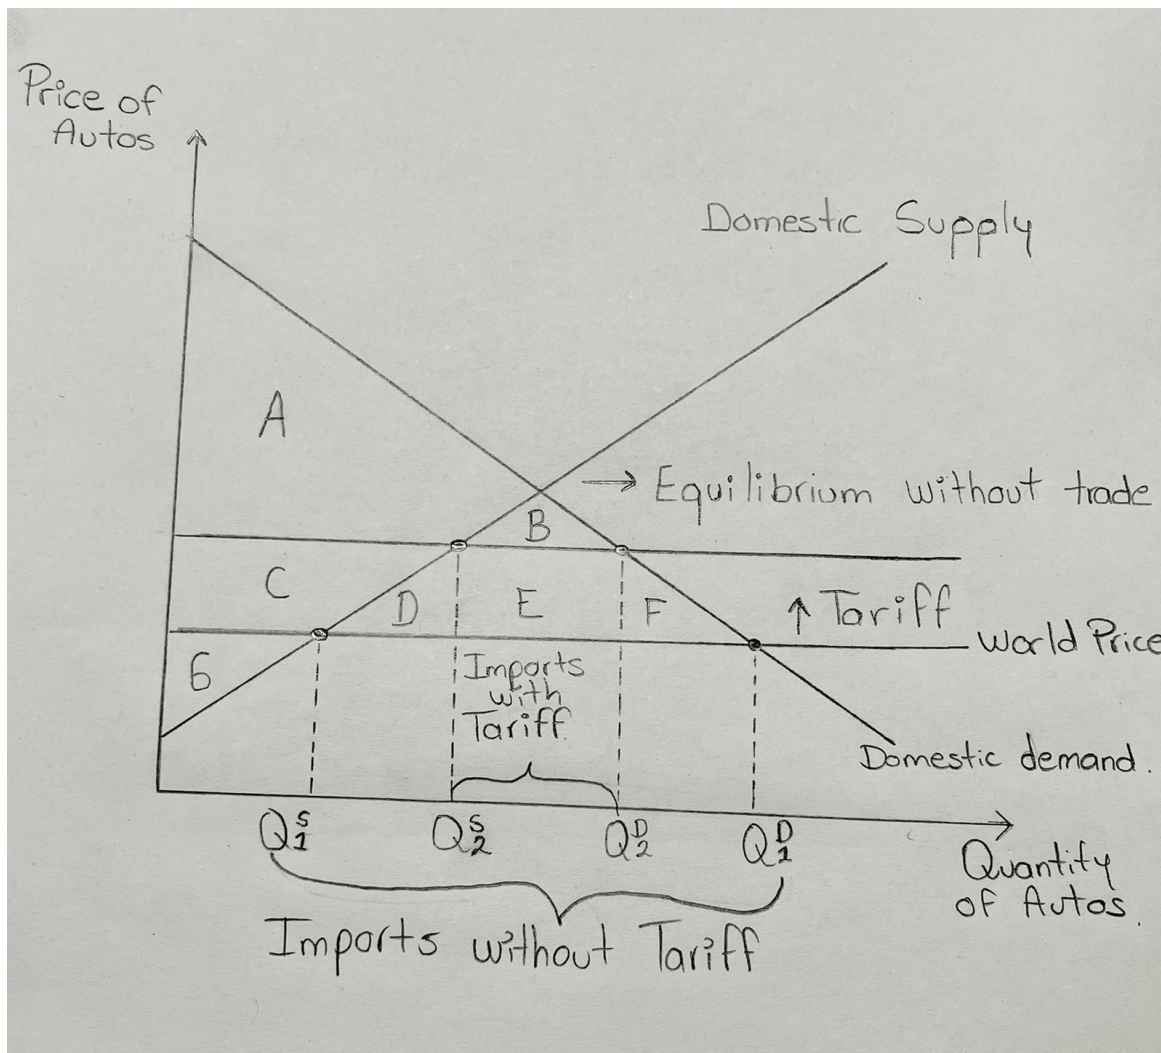 Price of
Autos
Domestic Supply
A
→ Equilibrium without trade
B
C
D
E
F
↑ Tariff
World Price
6
Imports
with
Tariff
Domestic demand.
Q₁ˢ
Q₂ˢ
Q₂ᴰ
Q₁ᴰ
Quantity
of Autos.
Imports without Tariff